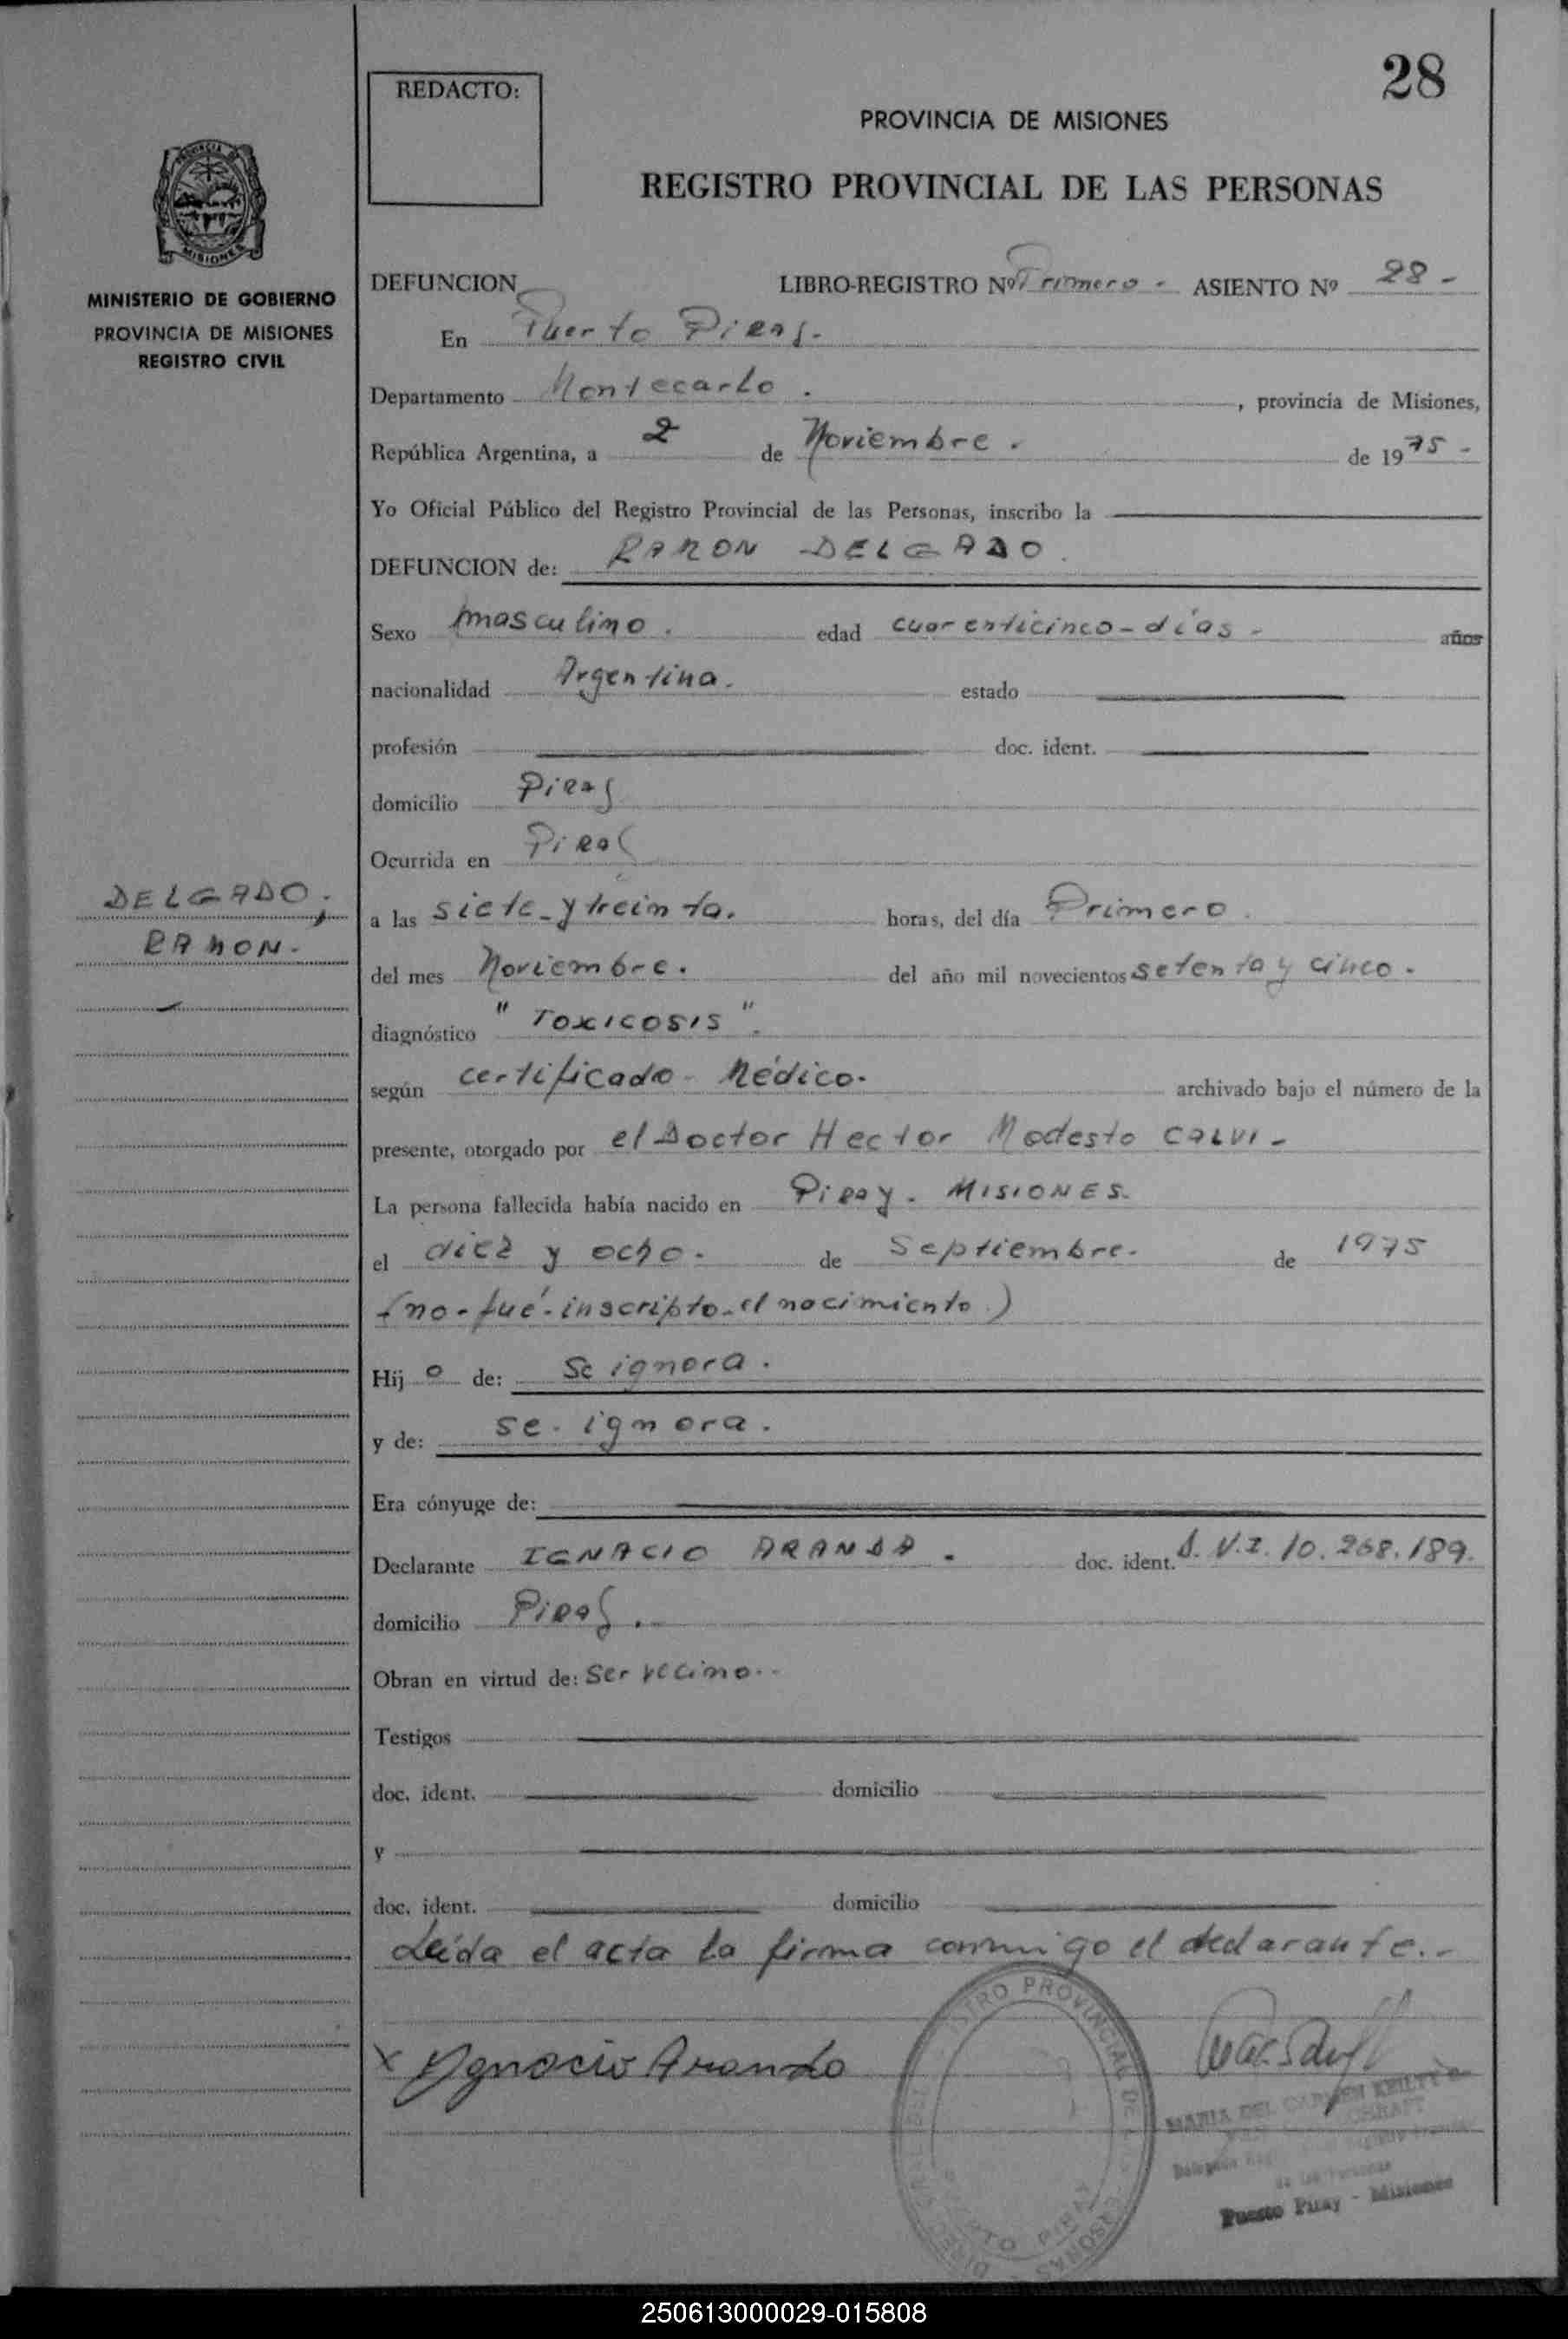 28
REDACTO:
PROVINCIA DE MISIONES
REGISTRO PROVINCIAL DE LAS PERSONAS
MISIONES
MINISTERIO DE GOBIERNO
PROVINCIA DE MISIONES
REGISTRO CIVIL
DEFUNCION LIBRO-REGISTRO Nº Primero - ASIENTO Nº 28 -
En Puerto Piray.
Departamento Montecarlo . , provincia de Misiones,
República Argentina, a 2 de Noviembre . de 1975 -
Yo Oficial Público del Registro Provincial de las Personas, inscribo la
DEFUNCION de: RAMON DELGADO.
Sexo masculino. edad cuarenticinco - días - años
nacionalidad Argentina. estado
profesión doc. ident.
domicilio Piray
Ocurrida en Piray
DELGADO,
RAMON.
a las siete - y treinta. horas, del día Primero.
del mes Noviembre. del año mil novecientos setenta y cinco.
diagnóstico "TOXICOSIS".
según certificado - Médico. archivado bajo el número de la
presente, otorgado por el Doctor Hector Modesto CALVI -
La persona fallecida había nacido en Piray. MISIONES.
el diez y ocho. de Septiembre. de 1975
(no - fué - inscripto - el nacimiento.)
Hijo de: Se ignora.
y de: se - ignora.
Era cónyuge de:
Declarante IGNACIO ARANDA. doc. ident. 10.268.189.
domicilio Piray.
Obran en virtud de: Ser vecino..
Testigos
doc. ident. domicilio
y
doc. ident. domicilio
Leída el acta la firma conmigo el declarante..
x Ygnacio Aranda
MARIA DEL CARMEN
de las Personas
Puerto Piray - Misiones
250613000029-015808